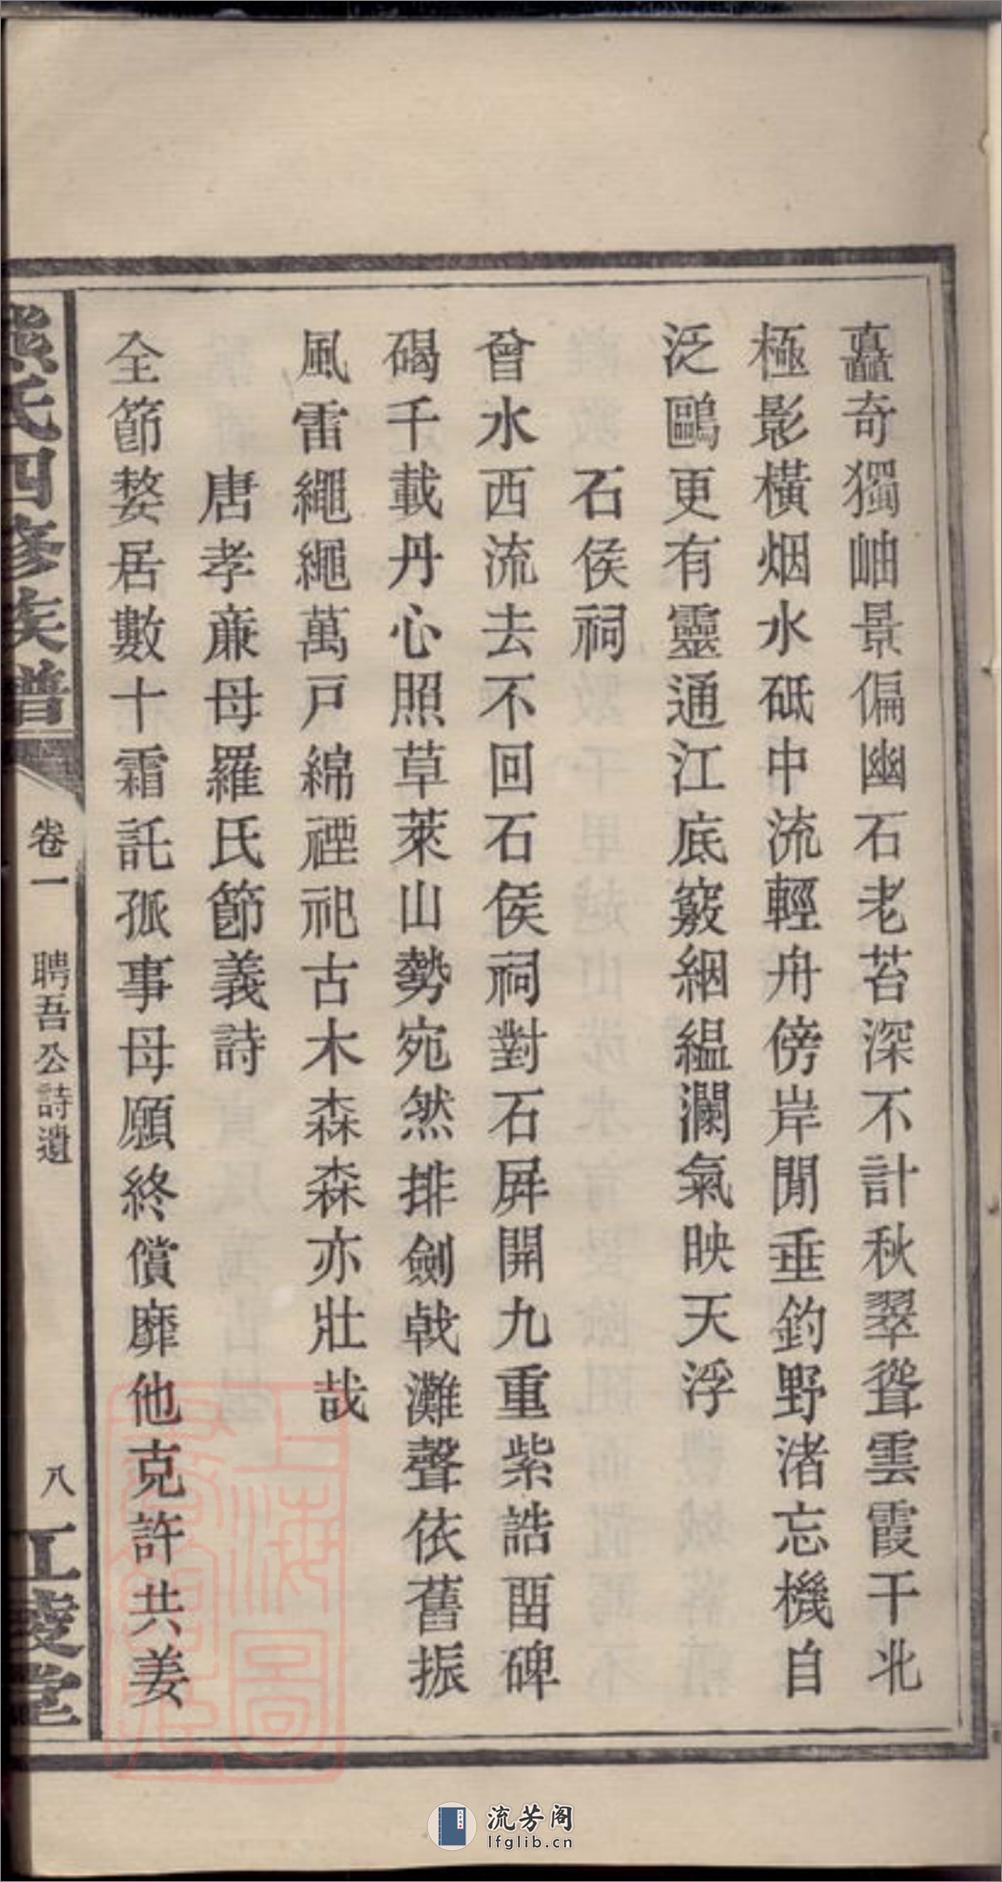 矗奇獨岫景偏幽石老苔深不計秋翠聳雲霞干北
極影橫烟水砥中流輕舟傍岸閒垂釣野渚忘機自
泛鷗更有靈通江底竅絪緼瀾氣映天浮
石侯祠
曾水西流去不回石侯祠對石屏開九重紫誥畱碑
碣千載丹心照草萊山勢宛然排劍戟灘聲依舊振
風雷繩繩萬戸綿禋祀古木森森亦壯哉
唐孝亷母羅氏節義詩
全節嫠居數十霜託孤事母願終償靡他克許共姜
熊氏四修族譜
卷一
聘吾公詩遺
八
江陵堂
上海圖書館藏
流芳阁
lfglib.cn